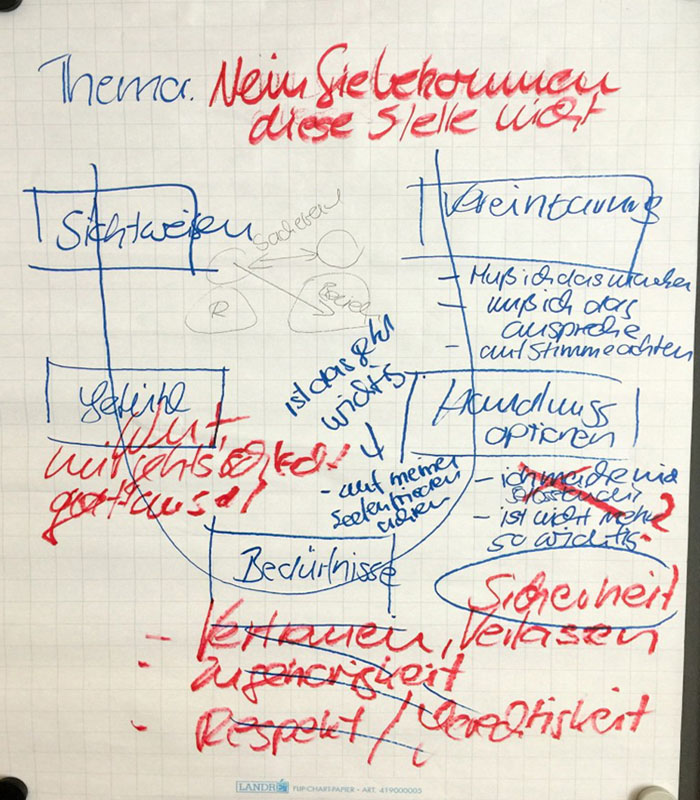 Thema. Nein Sie bekommen
diese Stelle nicht
Sichtweisen
Vereinbarung
- Muß ich das machen
- muß ich das
anspreche
- auf Stimme achten
R
ist das jetzt
wichtig
- auf meinen
Seelenfrieden
achten
Gefühle
Wut,
Handlungs
optionen
- ich mache mich
selbständig
- ist nicht mehr
so wichtig
?
Bedürfnisse
Sicherheit
- Vertrauen, Verlassen
- Zugehörigkeit
- Respekt / Gerechtigkeit
LANDRÉ FLIP-CHART-PAPIER - ART. 419000005